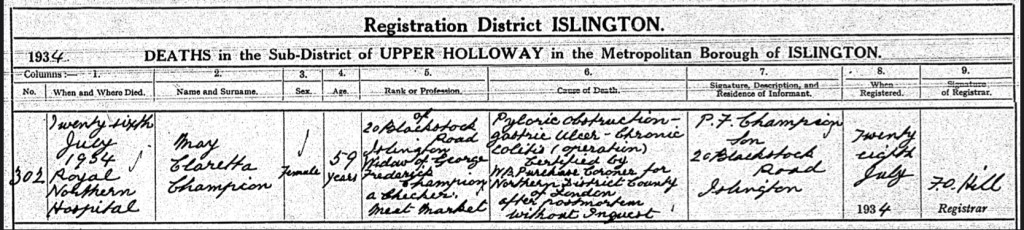 Registration District ISLINGTON.
1934. DEATHS in the Sub-District of UPPER HOLLOWAY in the Metropolitan Borough of ISLINGTON.
Columns:— 1. 2. 3. 4. 5. 6. 7. 8. 9.
No. When and Where Died. Name and Surname. Sex. Age. Rank or Profession. Cause of Death. Signature, Description, and Residence of Informant. When Registered. Signature of Registrar.
302
Twenty sixth
July
1934
Royal
Northern
Hospital
May
Claretta
Champion
Female
59
years
of
20 Blackstock
Road
Islington
Widow of George
Frederick
Champion
a Checker,
Meat Market
Pyloric obstruction-
gastric ulcer - Chronic
Colitis (operation)
Certified by
W.B. Purchase Coroner for
Northern District County
of London
after postmortem
without Inquest
P. F. Champion
Son
20 Blackstock
Road
Islington
Twenty
eighth
July
1934
F.O. Hill
Registrar